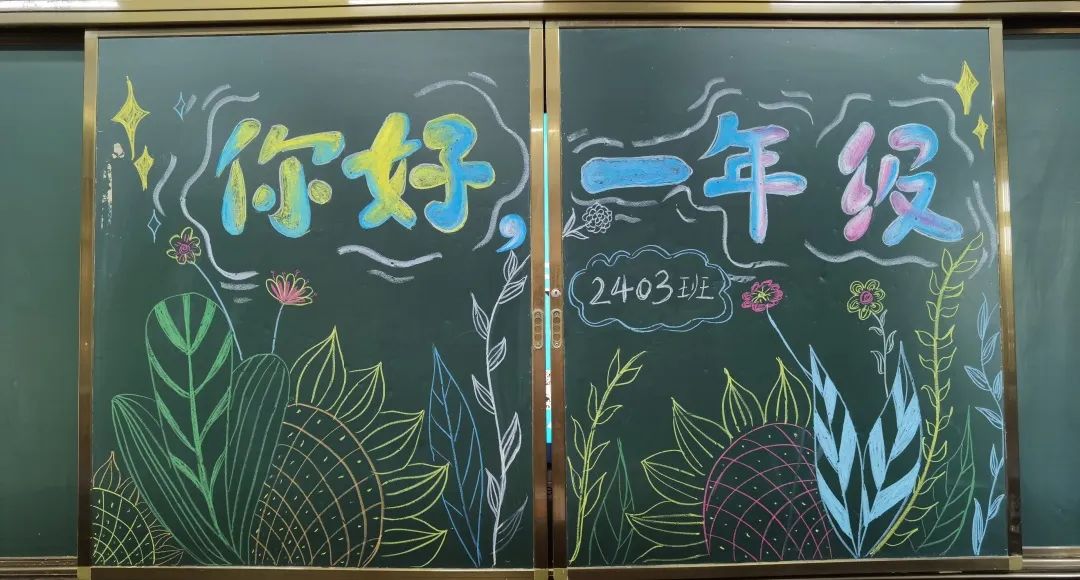 你好，一年级
2403班